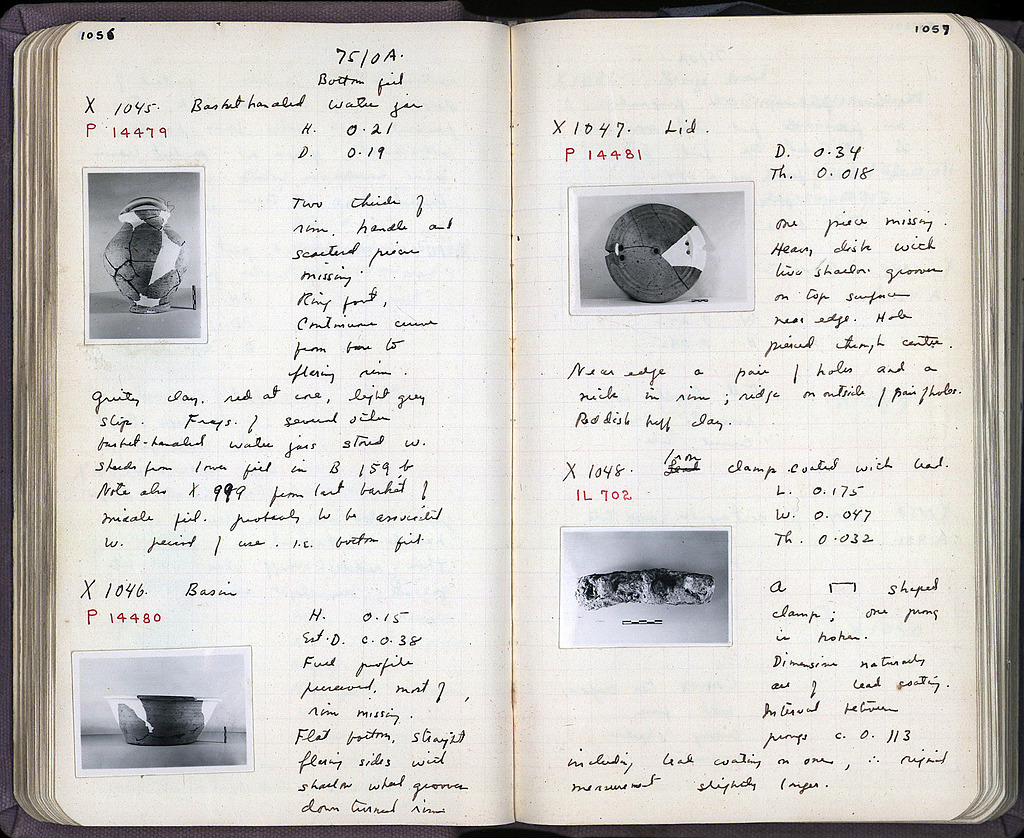 1056
75/OA.
Bottom fill
X 1045. Baskethandled water jar
P 14479
H. 0.21
D. 0.19
Two thirds of
rim, handle and
scattered pieces
missing.
Ring foot,
Continuous curve
from base to
flaring rim.
Gritty clay, red at core, light grey
slip. Frags. of several other
basket-handled water jars stored w.
sherds from lower fill in B 159 b
Note also X 999 from last basket of
middle fill. probably to be associated
w. period of use. i.e. bottom fill.
X 1046. Basin
P 14480
H. 0.15
Est. D. c. 0.38
Full profile
preserved, most of
rim missing.
Flat bottom, straight
flaring sides with
shallow wheel grooves
down turned rim
1057
X 1047. Lid.
P 14481
D. 0.34
Th. 0.018
One piece missing.
Heavy disk with
two shallow grooves
on top surface
near edge. Hole
pierced through centre.
Near edge a pair of holes and a
nick in rim; ridge on outside of pair of holes.
Reddish buff clay.
X 1048. Lead Iron clamp coated with lead.
IL 702
L. 0.175
W. 0.047
Th. 0.032
A shaped
clamp; one prong
is broken.
Dimensions naturally
are of lead coating.
Interval between
prongs c. 0.113
including lead coating on one, ∴ original
measurement slightly longer.